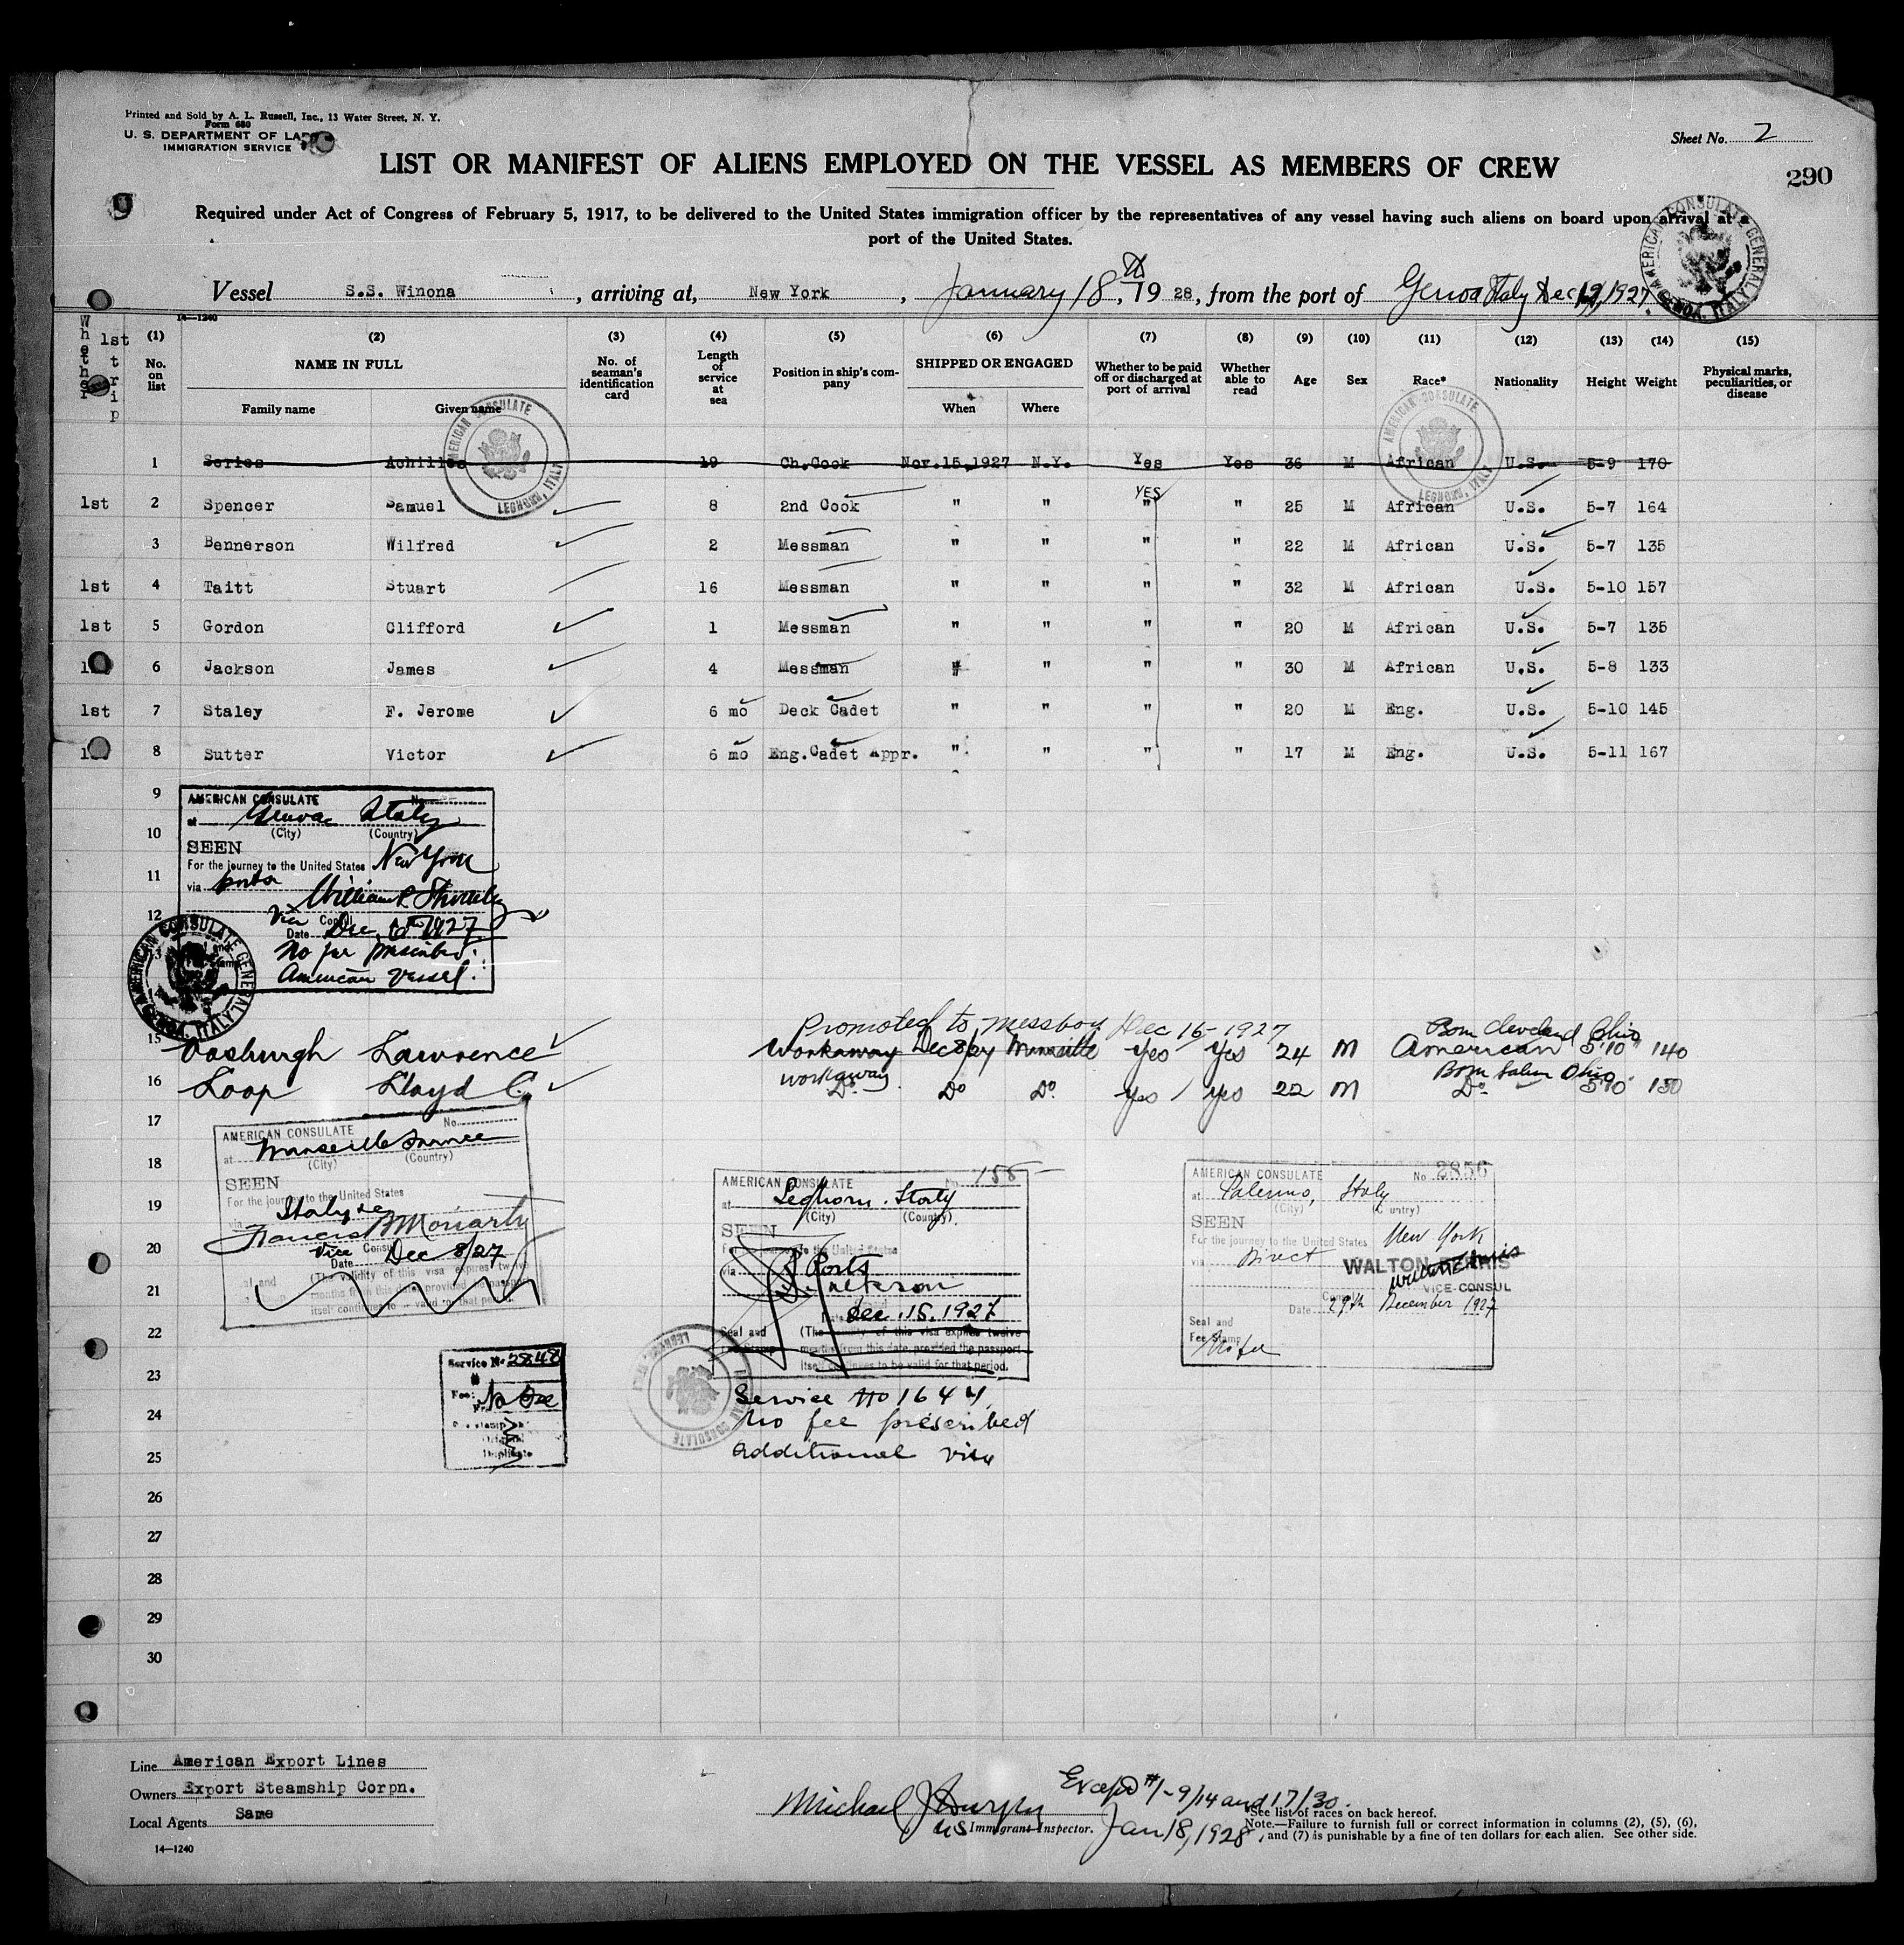 Printed and Sold by A. L. Russell, Inc., 13 Water Street, N. Y.
Form 680
U. S. DEPARTMENT OF LABOR
IMMIGRATION SERVICE
Sheet No. 2
290
LIST OR MANIFEST OF ALIENS EMPLOYED ON THE VESSEL AS MEMBERS OF CREW
Required under Act of Congress of February 5, 1917, to be delivered to the United States immigration officer by the representatives of any vessel having such aliens on board upon arrival at a
port of the United States.
AMERICAN CONSULATE GENERAL GENOA, ITALY
Vessel S.S. Winona, arriving at, New York, January 18th, 1928, from the port of Genoa Italy Dec 12, 1927
14—1240
Whether 1st trip
(1) No. on list
(2) NAME IN FULL Family name Given name
(3) No. of seaman's identification card
(4) Length of service at sea
(5) Position in ship's company
(6) SHIPPED OR ENGAGED When Where
(7) Whether to be paid off or discharged at port of arrival
(8) Whether able to read
(9) Age
(10) Sex
(11) Race*
(12) Nationality
(13) Height
(14) Weight
(15) Physical marks, peculiarities, or disease
AMERICAN CONSULATE LEGHORN, ITALY
AMERICAN CONSULATE LEGHORN, ITALY
1 Series Achilles 19 Ch.Cook Nov.15,1927 N.Y. Yes Yes 36 M African U.S. 5-9 170
YES
1st 2 Spencer Samuel 8 2nd Cook " " " " 25 M African U.S. 5-7 164
3 Bennerson Wilfred 2 Messman " " " " 22 M African U.S. 5-7 135
1st 4 Taitt Stuart 16 Messman " " " " 32 M African U.S. 5-10 157
1st 5 Gordon Clifford 1 Messman " " " " 20 M African U.S. 5-7 135
1 6 Jackson James 4 Messman " " " " 30 M African U.S. 5-8 133
1st 7 Staley F. Jerome 6 mo Deck Cadet " " " " 20 M Eng. U.S. 5-10 145
1 8 Sutter Victor 6 mo Eng.Cadet Appr. " " " " 17 M Eng. U.S. 5-11 167
9
10
11
12
AMERICAN CONSULATE No.
at Genoa Italy
(City) (Country)
SEEN
For the journey to the United States New York
via ports
William R
Vice Consul
Date Dec 1927
No fee prescribed
American vessel.
AMERICAN CONSULATE GENERAL GENOA, ITALY
Promoted to messboy Dec 16-1927
Born Cleveland Ohio
15 Vosburgh Lawrence Workaway Dec 8/27 Marseille Yes Yes 24 M American 5'10" 140
workaway
Born Salem Ohio
16 Loop Lloyd C. Do Do Do Yes Yes 22 M Do 5'10" 150
17
18
19
20
21
22
23
24
25
26
27
28
29
30
AMERICAN CONSULATE No.
at Marseille France
(City) (Country)
SEEN
For the journey to the United States
via Italy
Francis B Moriarty
Vice Consul
Date Dec 8/27
(The validity of this visa expires twelve
months from this date provided the passport
itself continues to be valid for that period.
AMERICAN CONSULATE No. 158
at Leghorn. Italy
(City) (Country)
SEEN
For the journey to the United States
via Ports
Date Dec. 15. 1927
Seal and (The validity of this visa expires twelve
Fee Stamp months from this date, provided the passport
itself continues to be valid for that period.
Service No 1644
No fee prescribed
additional visa
AMERICAN CONSULATE No 2856
at Palermo, Italy
(City) (Country)
SEEN
For the journey to the United States New York
via Direct
WALTON FERRIS
VICE-CONSUL
Date 29th December 1927
Seal and
Fee Stamp
No fee
Service No 2848
Fee: No Fee
Original
Duplicate
Line American Export Lines
Owners Export Steamship Corpn.
Local Agents Same
14—1240
Michael J Murphy
US Immigrant Inspector.
Except #1-9/14 and 17/30.
Jan 18, 1928
*See list of races on back hereof.
Note.—Failure to furnish full or correct information in columns (2), (5), (6),
and (7) is punishable by a fine of ten dollars for each alien. See other side.